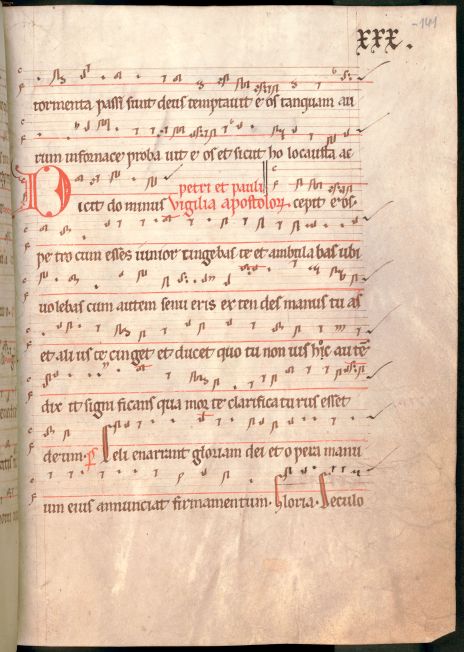 - 141
xxx.
tormenta passi sunt deus temptauit e os tanquam au
rum infornace proba uit e os et sicut ho locausta ac
petri et pauli
Dicit do minus Vigilia apostolor cepit eos.
pe tro cum esses iunior cingebas te et ambula bas ubi
uolebas cum autem senu eris ex ten des manus tu as
et ali us te cin get et ducet quo tu non uis hic au tē
dix it signi ficans qua mor te clarifica tu rus esset
de um. p Celi enarrant gloriam dei et o pera manu
um eius annunciat firmamentum. Gloria. Seculo